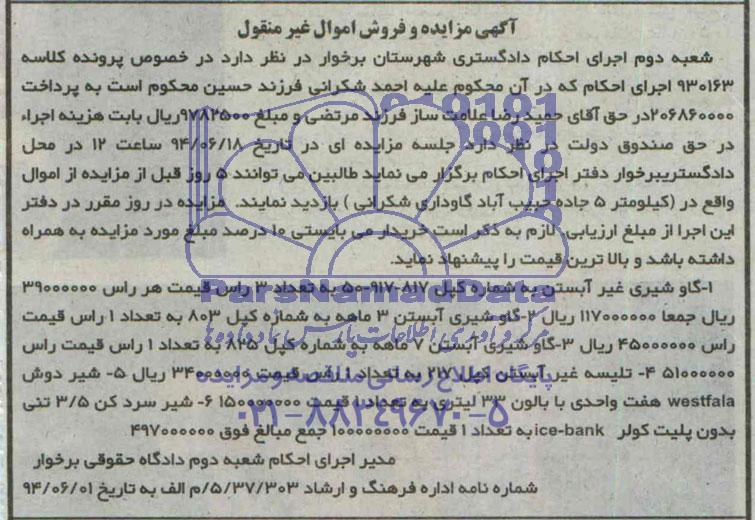 آگهی مزایده و فروش اموال غیر منقول
شعبه دوم اجرای احکام دادگستری شهرستان برخوار در نظر دارد در خصوص پرونده کلاسه
۹۳۰۱۶۳ اجرای احکام که در آن محکوم علیه احمد شکرانی فرزند حسین محکوم است به پرداخت
۲۰۶۸۶۰۰۰۰در حق آقای حمید رضا علامت ساز فرزند مرتضی و مبلغ ۹۷۸۲۵۰۰ریال بابت هزینه اجراء
در حق صندوق دولت در نظر دارد جلسه مزایده ای در تاریخ ۹۴/۰۶/۱۸ ساعت ۱۲ در محل
دادگستریبرخوار دفتر اجرای احکام برگزار می نماید طالبین می توانند ۵ روز قبل از مزایده از اموال
واقع در (کیلومتر ۵ جاده حبیب آباد گاوداری شکرانی ) بازدید نمایند. مزایده در روز مقرر در دفتر
این اجرا از مبلغ ارزیابی. لازم به ذکر است خریدار می بایستی ۱۰ درصد مبلغ مورد مزایده به همراه
داشته باشد و بالا ترین قیمت را پیشنهاد نماید.
۱-گاو شیری غیر آبستن به شماره کپل ۸۱۷-۹۱۷-۵۰ به تعداد ۳ راس قیمت هر راس ۳۹۰۰۰۰۰۰
ریال جمعا ۱۱۷۰۰۰۰۰۰ ریال ۲-گاو شیری آبستن ۳ ماهه به شماره کپل ۸۰۳ به تعداد ۱ راس قیمت
راس ۴۵۰۰۰۰۰۰ ریال ۳-گاو شیری آبستن ۷ ماهه به شماره کپل ۸۲۵ به تعداد ۱ راس قیمت راس
۵۱۰۰۰۰۰۰ ۴- تلیسه غیر آبستن کپل ۲۱۷ به تعداد ۱ راس قیمت ۳۴۰۰۰۰۰۰ ریال ۵- شیر دوش
westfala هفت واحدی با بالون ۳۳ لیتری به تعداد۱ قیمت ۱۵۰۰۰۰۰۰۰ ۶- شیر سرد کن ۳/۵ تنی
بدون پلیت کولر ice-bank به تعداد ۱ قیمت ۱۰۰۰۰۰۰۰۰ جمع مبالغ فوق ۴۹۷۰۰۰۰۰۰
مدیر اجرای احکام شعبه دوم دادگاه حقوقی برخوار
شماره نامه اداره فرهنگ و ارشاد ۵/۳۷/۳۰۳/م الف به تاریخ ۹۴/۰۶/۰۱
ParsNamadData
مرکز فرآوری اطلاعات پارس نماد داده ها
پایگاه اطلاع رسانی مناقصه و مزایده
۰۲۱-۸۸۳۴۹۶۷۰-۵